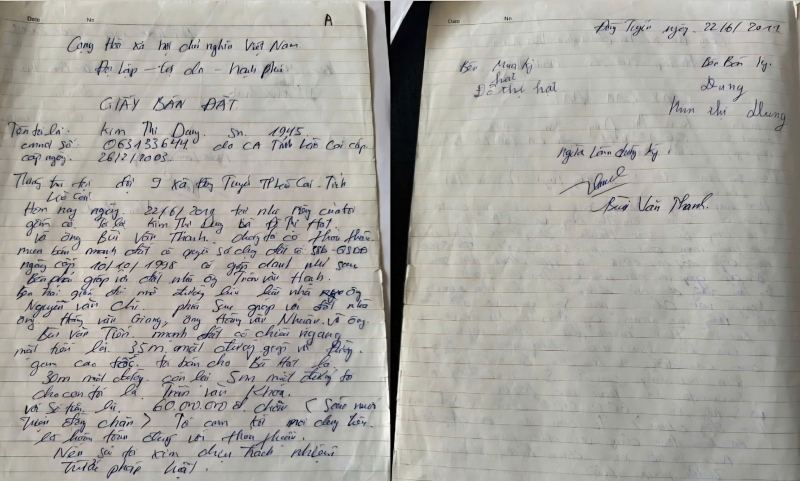 Date No A
Cộng Hòa xã hội chủ nghĩa Việt Nam
Độc lập - tự do - hạnh phúc
GIẤY BÁN ĐẤT
Tên tôi là: Kim Thị Dung. sn. 1945.
cmnd số: 063133644 do CA Tỉnh Lào Cai cấp.
cấp ngày. 26/12/2003.
Thường trú tại đội 9 xã Đồng Tuyển TP Lào Cai - Tỉnh
Lào Cai
Hôm nay ngày 22/6/2011 tại nhà riêng của tôi
gồm có tôi là Kim Thị Dung bà Đỗ Thị Hạt.
và ông Bùi Văn Thanh. chúng tôi có thỏa thuận
mua bán mảnh đất có quyền sử dụng đất số
ngày cấp 10/10/1998 có giáp danh như sau
Bên phải giáp với đất nhà ông Trần Văn Hạnh.
Bên trái giáp đất mở đường lên nhà ông
Nguyễn Văn Chi, phía sau giáp với đất nhà
ông Hoàng Văn Giang, ông Hoàng Văn Nhuận và ông
Bùi Văn Tiến mảnh đất có chiều ngang
mặt tiền là 35m mặt đường
cao tốc. tôi bán cho Bà Hạt là
30m mặt đường còn lại 5m mặt đường tôi
cho con tôi là Trần Văn Khoa.
với số tiền là 60.000.000đ chẵn (Sáu mươi
triệu đồng chẵn) Tôi cam
là hoàn toàn đúng với thỏa thuận.
Nếu sai tôi xin chịu trách nhiệm
trước pháp luật.
Date No
Đồng Tuyển ngày 22/6/2011
Bên Mua Ký
hạt
Đỗ thị hạt
Bên Bán Ký.
Dung
Kim thị Dung
Người làm chứng ký
Bùi Văn Thanh.